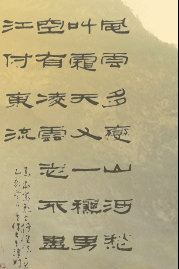 風雲多變山河愁
叫霜天又一穐男
空有凌雲志不盡
江付東流